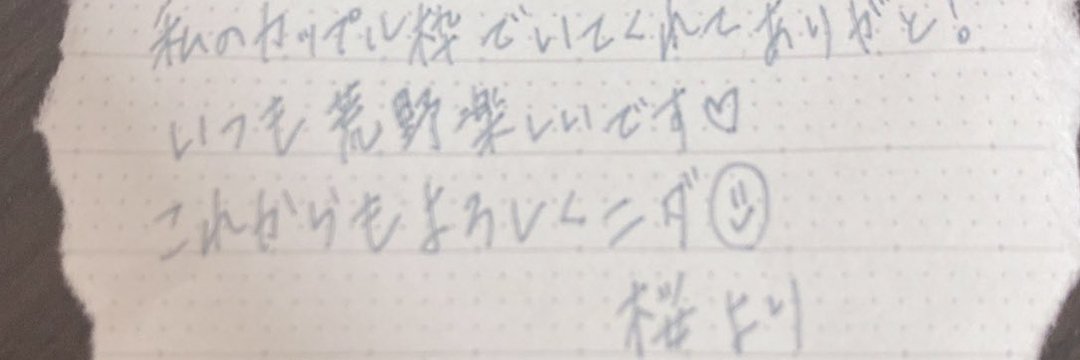 私のカップル枠でいてくれてありがと!
いつも荒野楽しいです♡
これからもよろしくニダ☺
桜より